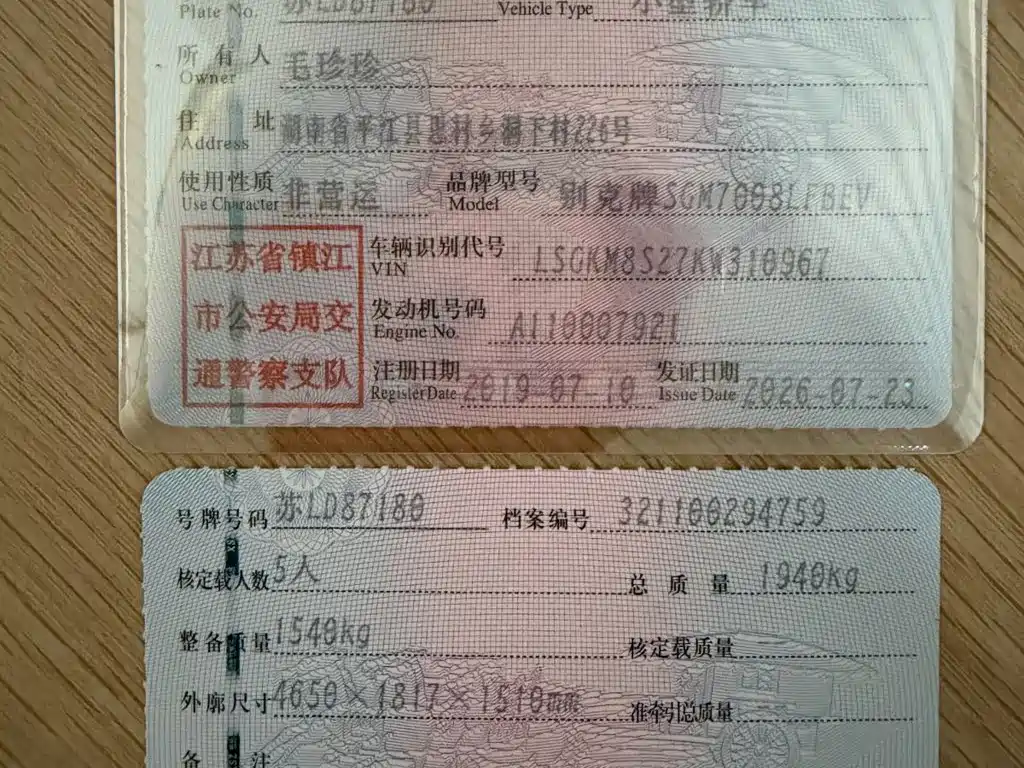 Plate No. 苏LD87180 Vehicle Type 小型轿车
所有人 Owner 毛珍珍
住址 Address 湖南省平江县思村乡洞下村226号
使用性质 Use Character 非营运 品牌型号 Model 别克牌SGM7008LFBEV
江苏省镇江 车辆识别代号 VIN LSGKM8S27KW310967
市公安局交 发动机号码 Engine No. A110007921
通警察支队 注册日期 Register Date 2019-07-10 发证日期 Issue Date 2026-07-23
号牌号码 苏LD87180 档案编号 321100294759
核定载人数 5人 总质量 1940kg
整备质量 1540kg 核定载质量
外廓尺寸 4650×1817×1510mm 准牵引总质量
备注